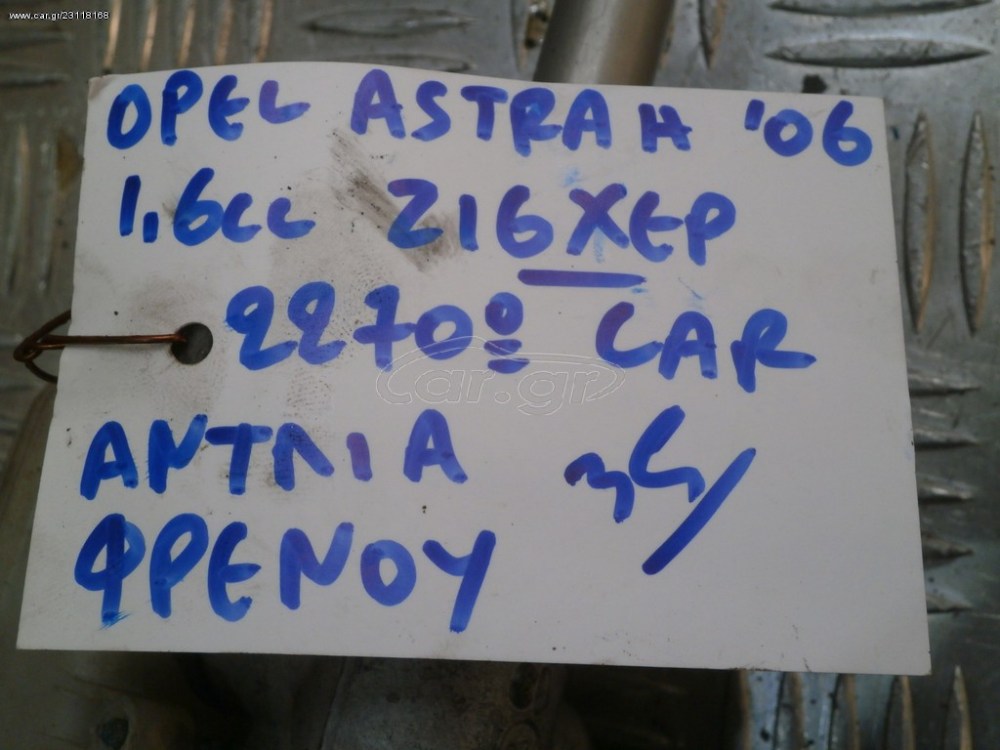 www.car.gr/23118168
OPEL ASTRA H '06
1,6cc Z16XEP
2270º CAR
car.gr
ΑΝΤΛΙΑ
ΦΡΕΝΟΥ